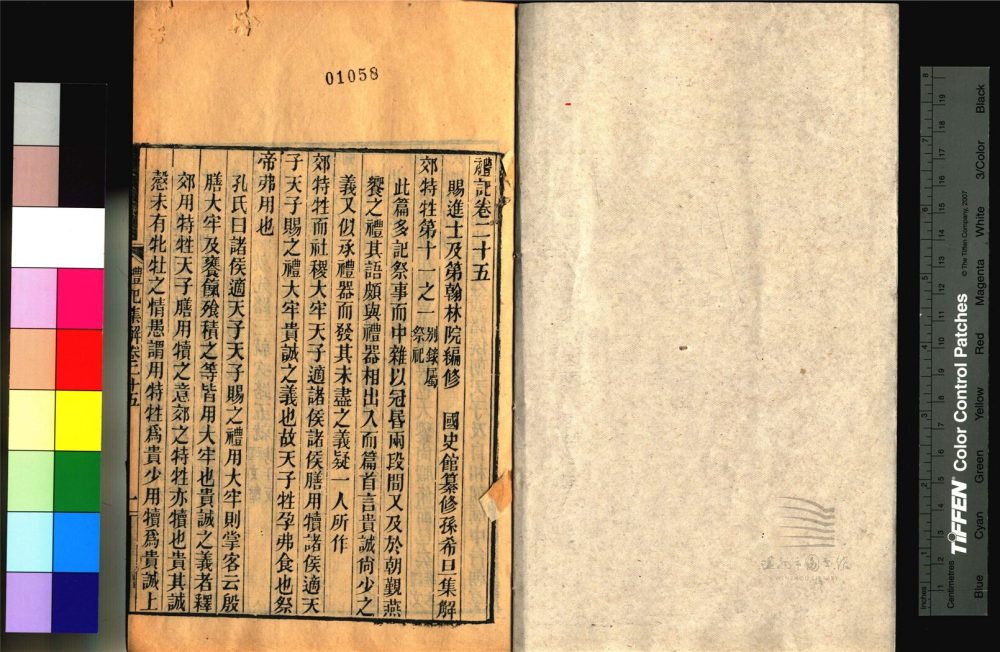 01058
禮記卷二十五
賜進士及第翰林院編修 國史館纂修孫希旦集解
郊特牲第十一之一 別錄屬祭祀
此篇多記祭事而中雜以冠昏兩段間又及於朝覲燕
饗之禮其語頗與禮器相出入而篇首言貴誠尚少之
義又似承禮器而發其未盡之義疑一人所作
郊特牲而社稷大牢天子適諸侯諸侯膳用犢諸侯適天
子天子賜之禮大牢貴誠之義也故天子牲孕弗食也祭
帝弗用也
孔氏曰諸侯適天子天子賜之禮用大牢則掌客云殷
膳大牢及饔餼飱積之等皆用大牢也貴誠之義者釋
郊用特牲天子膳用犢之意郊之特牲亦犢也貴其誠
愨未有牝牡之情愚謂用特牲爲貴少用犢爲貴誠上
禮記集解卷二十五
一
Inches
Centimetres
TIFFEN Color Control Patches
© The Tiffen Company, 2007
Blue Cyan Green Yellow Red Magenta White 3/Color Black